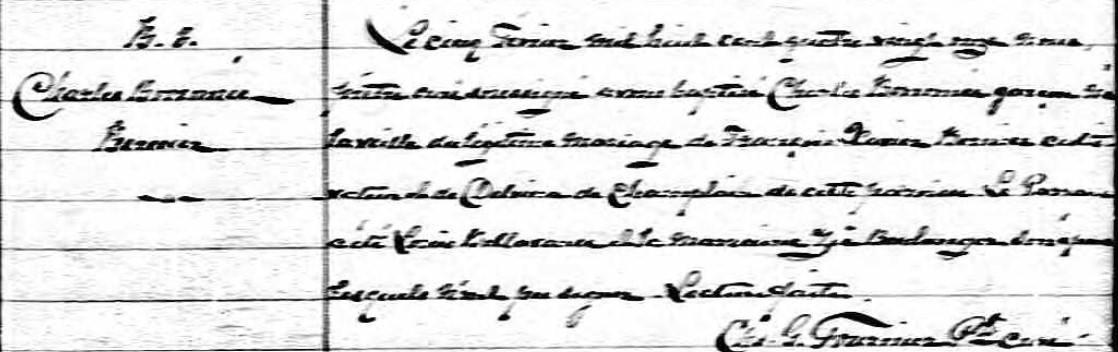 B. 5.
Charles Borromée
Bernier
Le cinq février mil huit cent quatre vingt onze nous,
prêtre curé soussigné avons baptisé Charles Borromée garçon né
la veille du légitime mariage de François Xavier Bernier culti-
vateur & de Delvina de Champlain de cette paroisse. Le Parrain
a été Louis et la marraine Boulanger
lesquels n'ont pu signer. Lecture faite.
Chs. G. Fournier Ptre curé